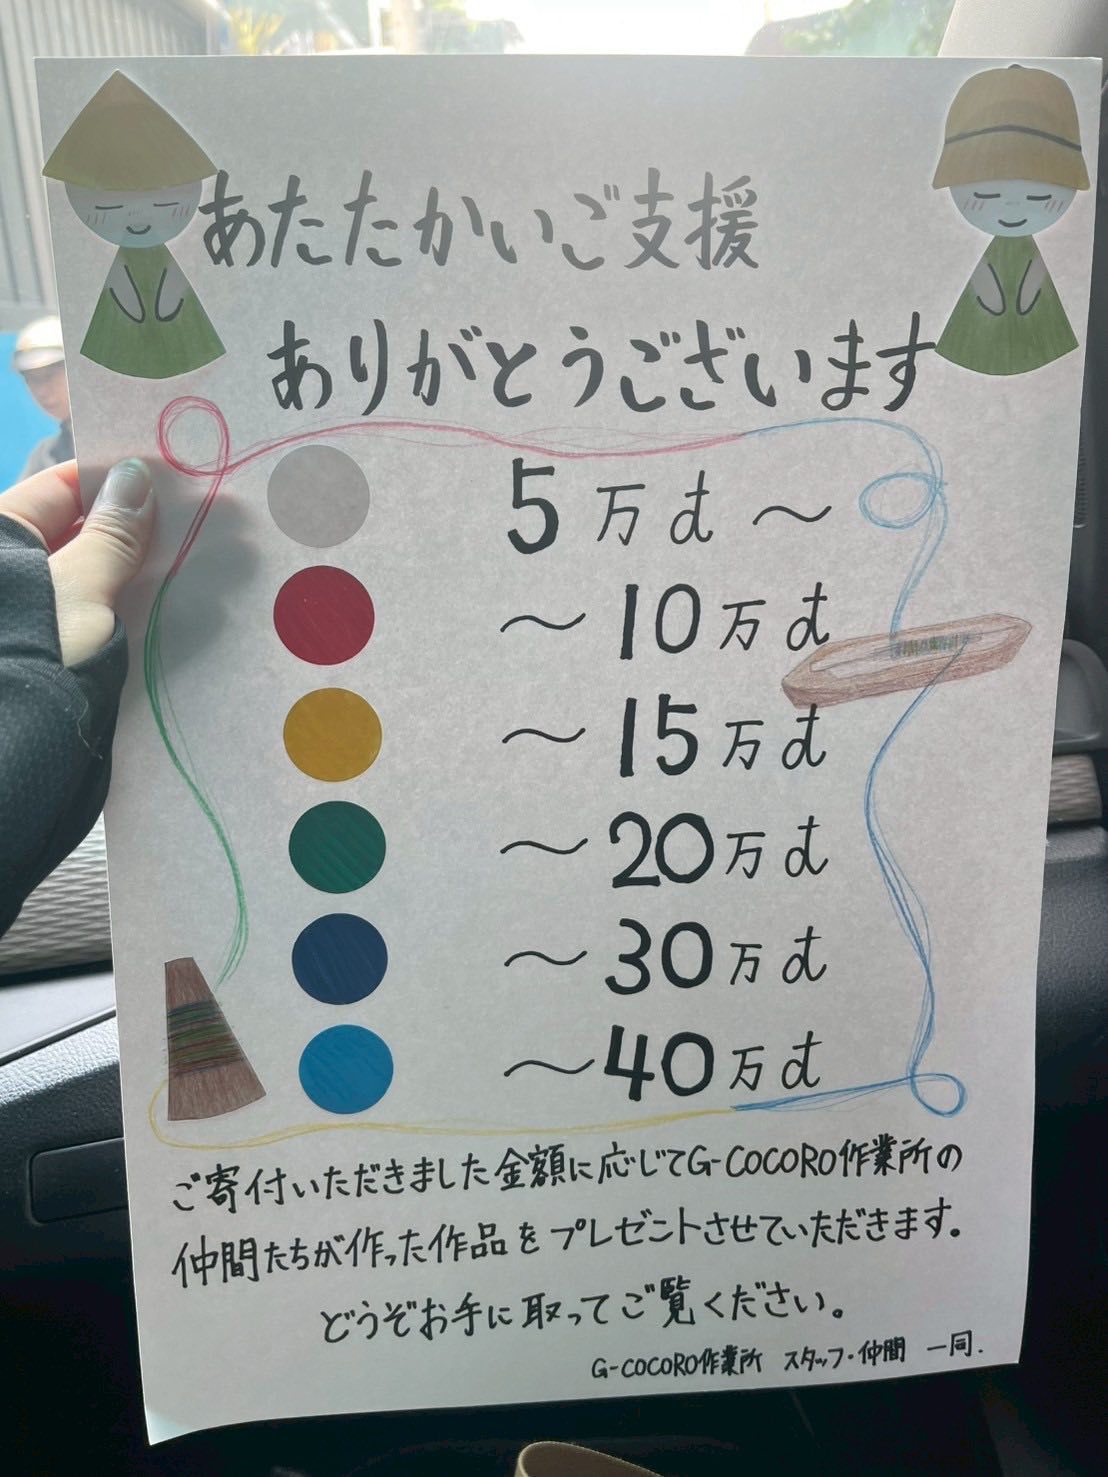 あたたかいご支援
ありがとうございます
5万đ〜
〜10万đ
〜15万đ
〜20万đ
〜30万đ
〜40万đ
ご寄付いただきました金額に応じてG-COCORO作業所の
仲間たちが作った作品をプレゼントさせていただきます。
どうぞお手に取ってご覧ください。
G-COCORO作業所 スタッフ・仲間 一同.